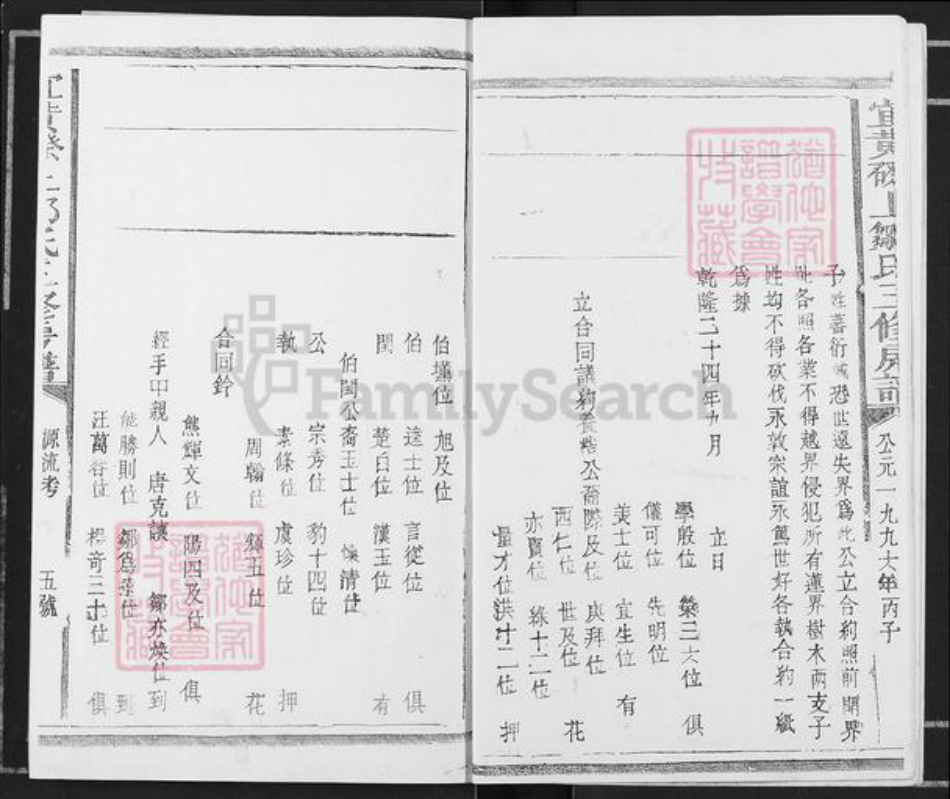 宜黃磜上鄒氏三修房譜
公元一九九六年丙子
子姓蕃衍誠恐世遠失界爲此公立合約照前開界
址各照各業不得越界侵犯所有連界樹木兩支子
姓均不得砍伐永敦宗誼永篤世好各執合約一紙
爲據
乾隆二十四年九月 立日
學殷位 榮三六位 俱
儀可位 先明位
美士位 宜生位 有
立合同議約養楷公裔際及位 庚拜位
西仁位 世及位 花
亦賓位 綠十二位
量才位 洪十二位 押
伯壎位 旭及位
伯 達士位 言從位 俱
閏 楚白位 漢玉位 有
伯閏公裔玉士位 清位
公 宗秀位 豹十四位
執 素條位 虞珍位 押
周翰位 五位 花
合同鈐
熊輝文位 陽四及位 俱
經手中親人 唐克讓 鄒亦煥位 到
能勝則位 鄒爲 位 到
汪萬谷位 楊奇三十位 俱
源流考
五號
FamilySearch
猶他家譜學會收藏
猶他家譜學會收藏